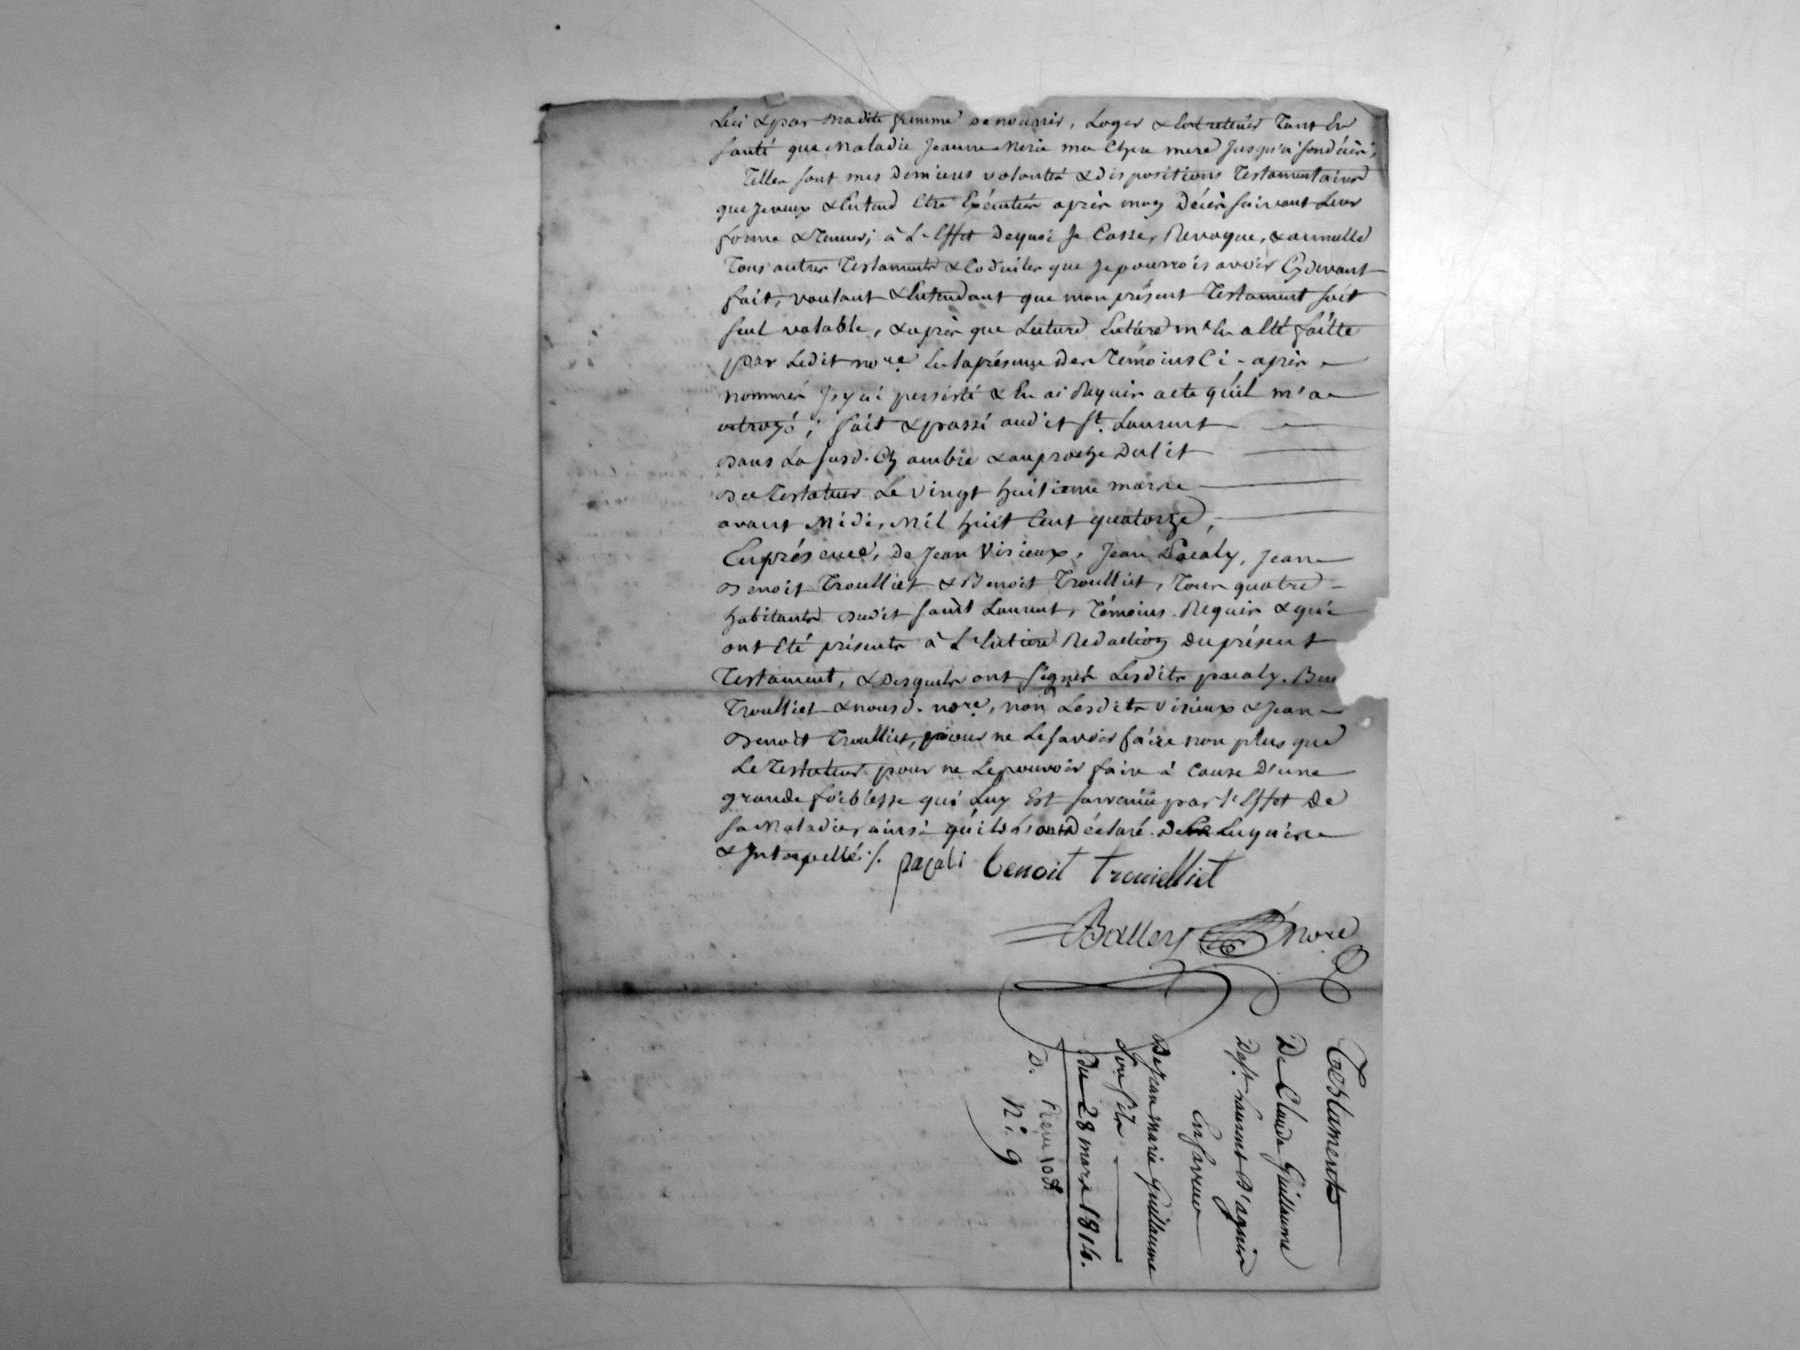 Lui & par madite femme de nourrir, Loger & Entretenir Tant En
santé que Maladie Jeanne Merie ma Chere mere Jusqu'a son décès;
Telles sont mes dernieres volontés & dispositions Testamentaires
que Je veux & Entend Etre Exécutées après mon Décès suivant Leur
forme & Teneur; à L'Effet Dequoi Je Casse, Revoque, & annulle
Tous autres Testaments & Codiciles que Je pourrois avoir Cydevant
fait, voulant & Entendant que mon présent Testament soit
seul valable, & après que Lecture Entiere m'En a Eté faitte
par Ledit nore. En la présence des Témoins Ci-après
nommés J'y ai persisté & En ai Requis acte qu'il m'a
octroyé; fait & passé audit St. Laurent
dans La susd. Chambre & au proche Du lit
du Testateur Le vingt huitieme mars
avant Midi, Mil huit Cent quatorze,
En présence, De Jean Visieux, Jean Pacaly, Jean
Benoit Troulliet & Benoit Troulliet, Tous quatre
habitants dudit saint Laurent, Témoins Requis & qui
ont Eté présents à L'Entiere Redaction du présent
Testament, & Desquels ont signés Lesdits pacaly. Ben
Troulliet & nousd. nore, non Lesdits Visieux & Jean
Benoit Troulliet, pour ne Le savoir faire non plus que
Le Testateur pour ne Le pouvoir faire à Cause D'une
grande foiblesse qui Luy Est survenüe par l'Effet De
sa Maladie, ainsi qu'ils L'ont Déclaré De Ce Enquis
& Interpellé ;/. paçali benoit trouielliet
Balley nore
Testament
De Claude Guillaume
De St. Laurent D'agnin
En faveur
De Jean Marie Guillaume
Son fils
Du 28 mars 1814.
D.
N.° 9